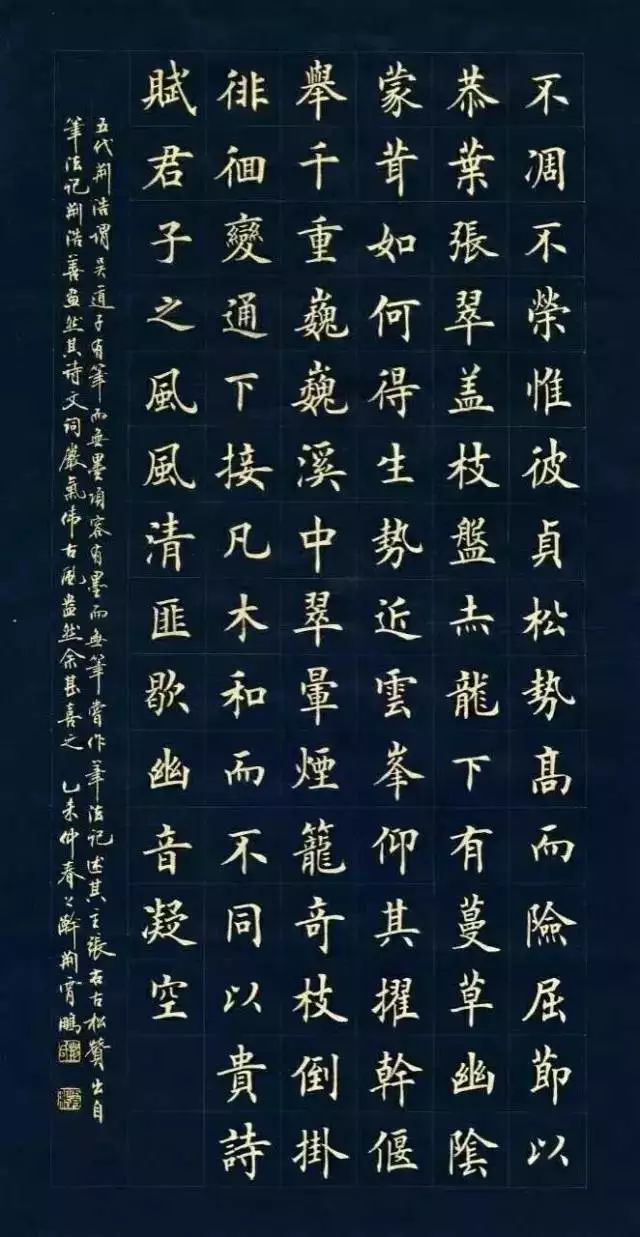 不凋不榮惟彼貞松勢高而險屈節以
恭葉張翠盖枝盤赤龍下有蔓草幽陰
蒙茸如何得生勢近雲峯仰其擢幹偃
舉千重巍巍溪中翠暈煙籠奇枝倒掛
徘徊變通下接凡木和而不同以貴詩
賦君子之風風清匪歇幽音凝空
五代荆浩謂吴道子有筆而無墨項容有墨而無筆嘗作筆法記述其主張右古松贊出自
筆法記荆浩善畫然其詩文詞嚴氣偉古風盎然余甚喜之 乙未仲春 荆霄鵬